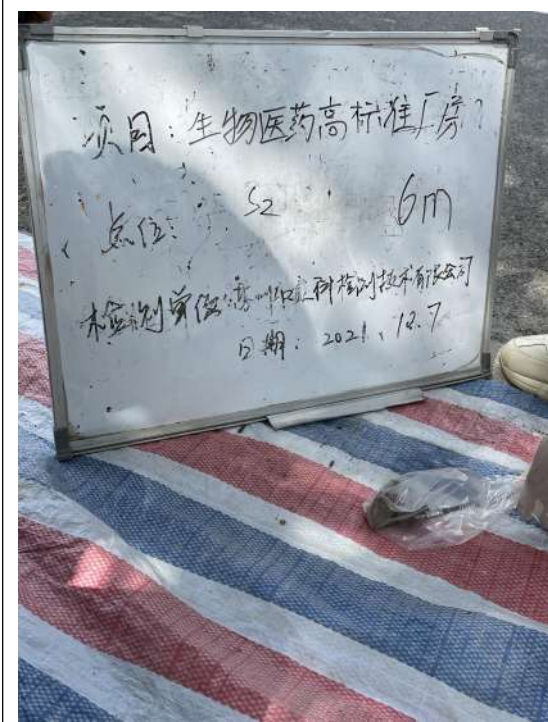 项目：生物医药高标准厂房
点位： S2 6m
检测单位：苏州 科检测技术有限公司
日期：2021.12.7